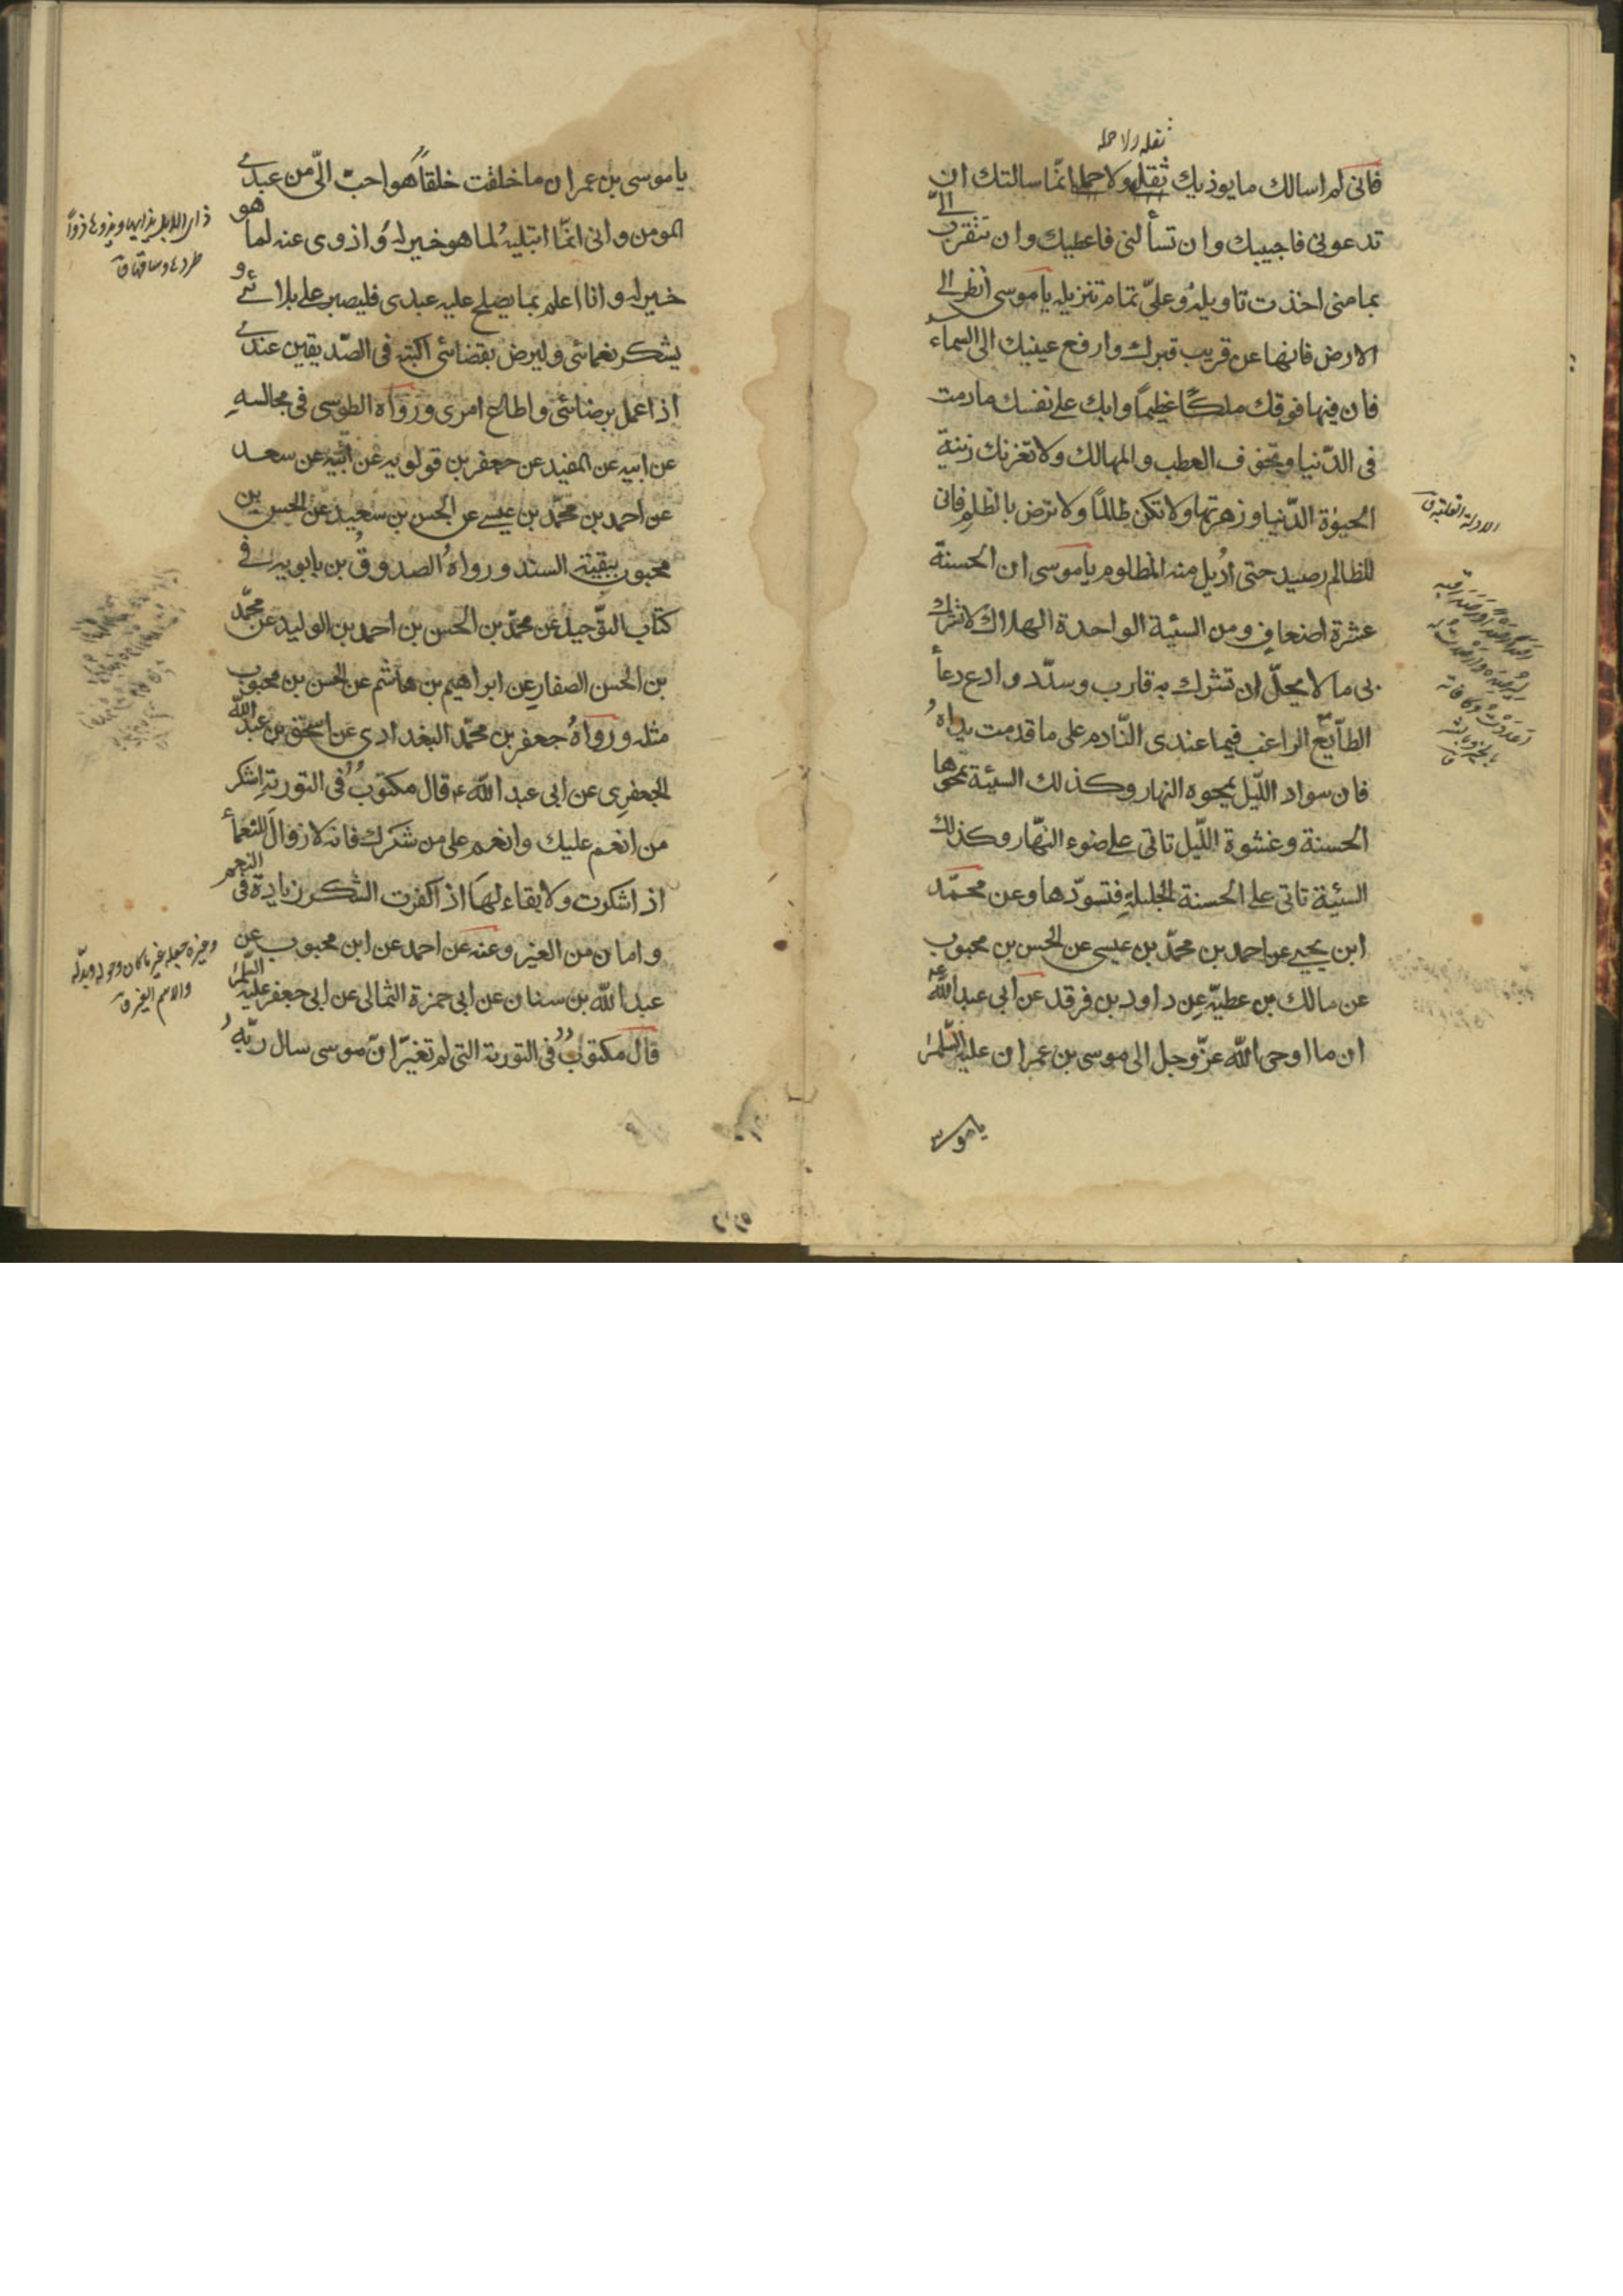 ثقله ولا حمله
فانى لم اسالك ما يوذيك ثقله ولا حمله انّما سالتك ان
تدعونى فاجيبك وان تسألنى فاعطيك وان تتقرب الىّ
بما منى اخذت تاويله وعلىّ تمام تنزيله يا موسى انظر الى
الارض فانها عن قريب قبرك وارفع عينيك الى السماء
فان فيها فوقك ملكًا عظيمًا وابك على نفسك ما دمت
فى الدّنيا وتخوف العطب والمهالك ولا تغرنك زينة
الحيوة الدّنيا وزهرتها ولا تكن ظالمًا ولا ترض بالظلم فانى
للظالم رصيد حتى اديل منه المظلوم يا موسى ان الحسنة
عشرة اضعاف ومن السيئة الواحدة الهلاك لا تشرك
بى ما لا يحلّ ان تشرك به قارب وسدّد وادع دعأ
الطآيع الراغب فيما عندى النّادم على ما قدمت يداه
فان سواد اللّيل يمحوه النهار وكذلك السيئة تمحوها
الحسنة وغشوة اللّيل تاتى على ضوء النهّار وكذلك
السيئة تاتى على الحسنة الجليلة فتسوّدها وعن محمّد
ابن يحيى عن احمد بن محمّد بن عيسى عن الحسن بن محبوب
عن مالك بن عطيّة عن داود بن فرقد عن ابى عبد الله ع
ان ما اوحى الله عزّ وجل الى موسى بن عمران عليه السّلم
يا موسى
يا موسى بن عمران ما خلقت خلقاً هو احبّ الىّ من عبدى
المومن وانى انمّا ابتليه لما هو خير له وازوى عنه لما هو
خير له وانا اعلم بما يصلح عليه عبدى فليصبر على بلائى و
يشكر نعمائى وليرض بقضائى اكتبه فى الصّديقين عندى
اذا عمل برضائى واطاع امرى ورواه الطوسى فى مجالسه
عن ابيه عن المفيد عن جعفر بن قولويه عن ابيه عن سعد
عن احمد بن محمّد بن عيسى عن الحسن بن سعيد عن الحسن بن
محبوب ببقية السند ورواه الصدوق بن بابويه فى
كتاب التوحيد عن محمّد بن الحسن بن احمد بن الوليد عن محمّد
بن الحسن الصفار عن ابراهيم بن هاشم عن الحسن بن محبوب
مثله ورواه جعفر بن محمّد البغدادى عن اسحق بن عبد الله
الجعفرى عن ابى عبد الله ع قال مكتوب فى التورية اشكر
من انعم عليك وانعم على من شكرك فانه لا زوال للنعمأ
اذا شكرت ولا بقاء لها اذا كفرت الشكر زيادة فى النعم
وامان من الغير وعنه عن احمد عن ابن محبوب عن
عبد الله بن سنان عن ابى حمزة الثمالى عن ابى جعفر عليه السّلم
قال مكتوب فى التورية التى لم تغيّر انّ موسى سال ربّه